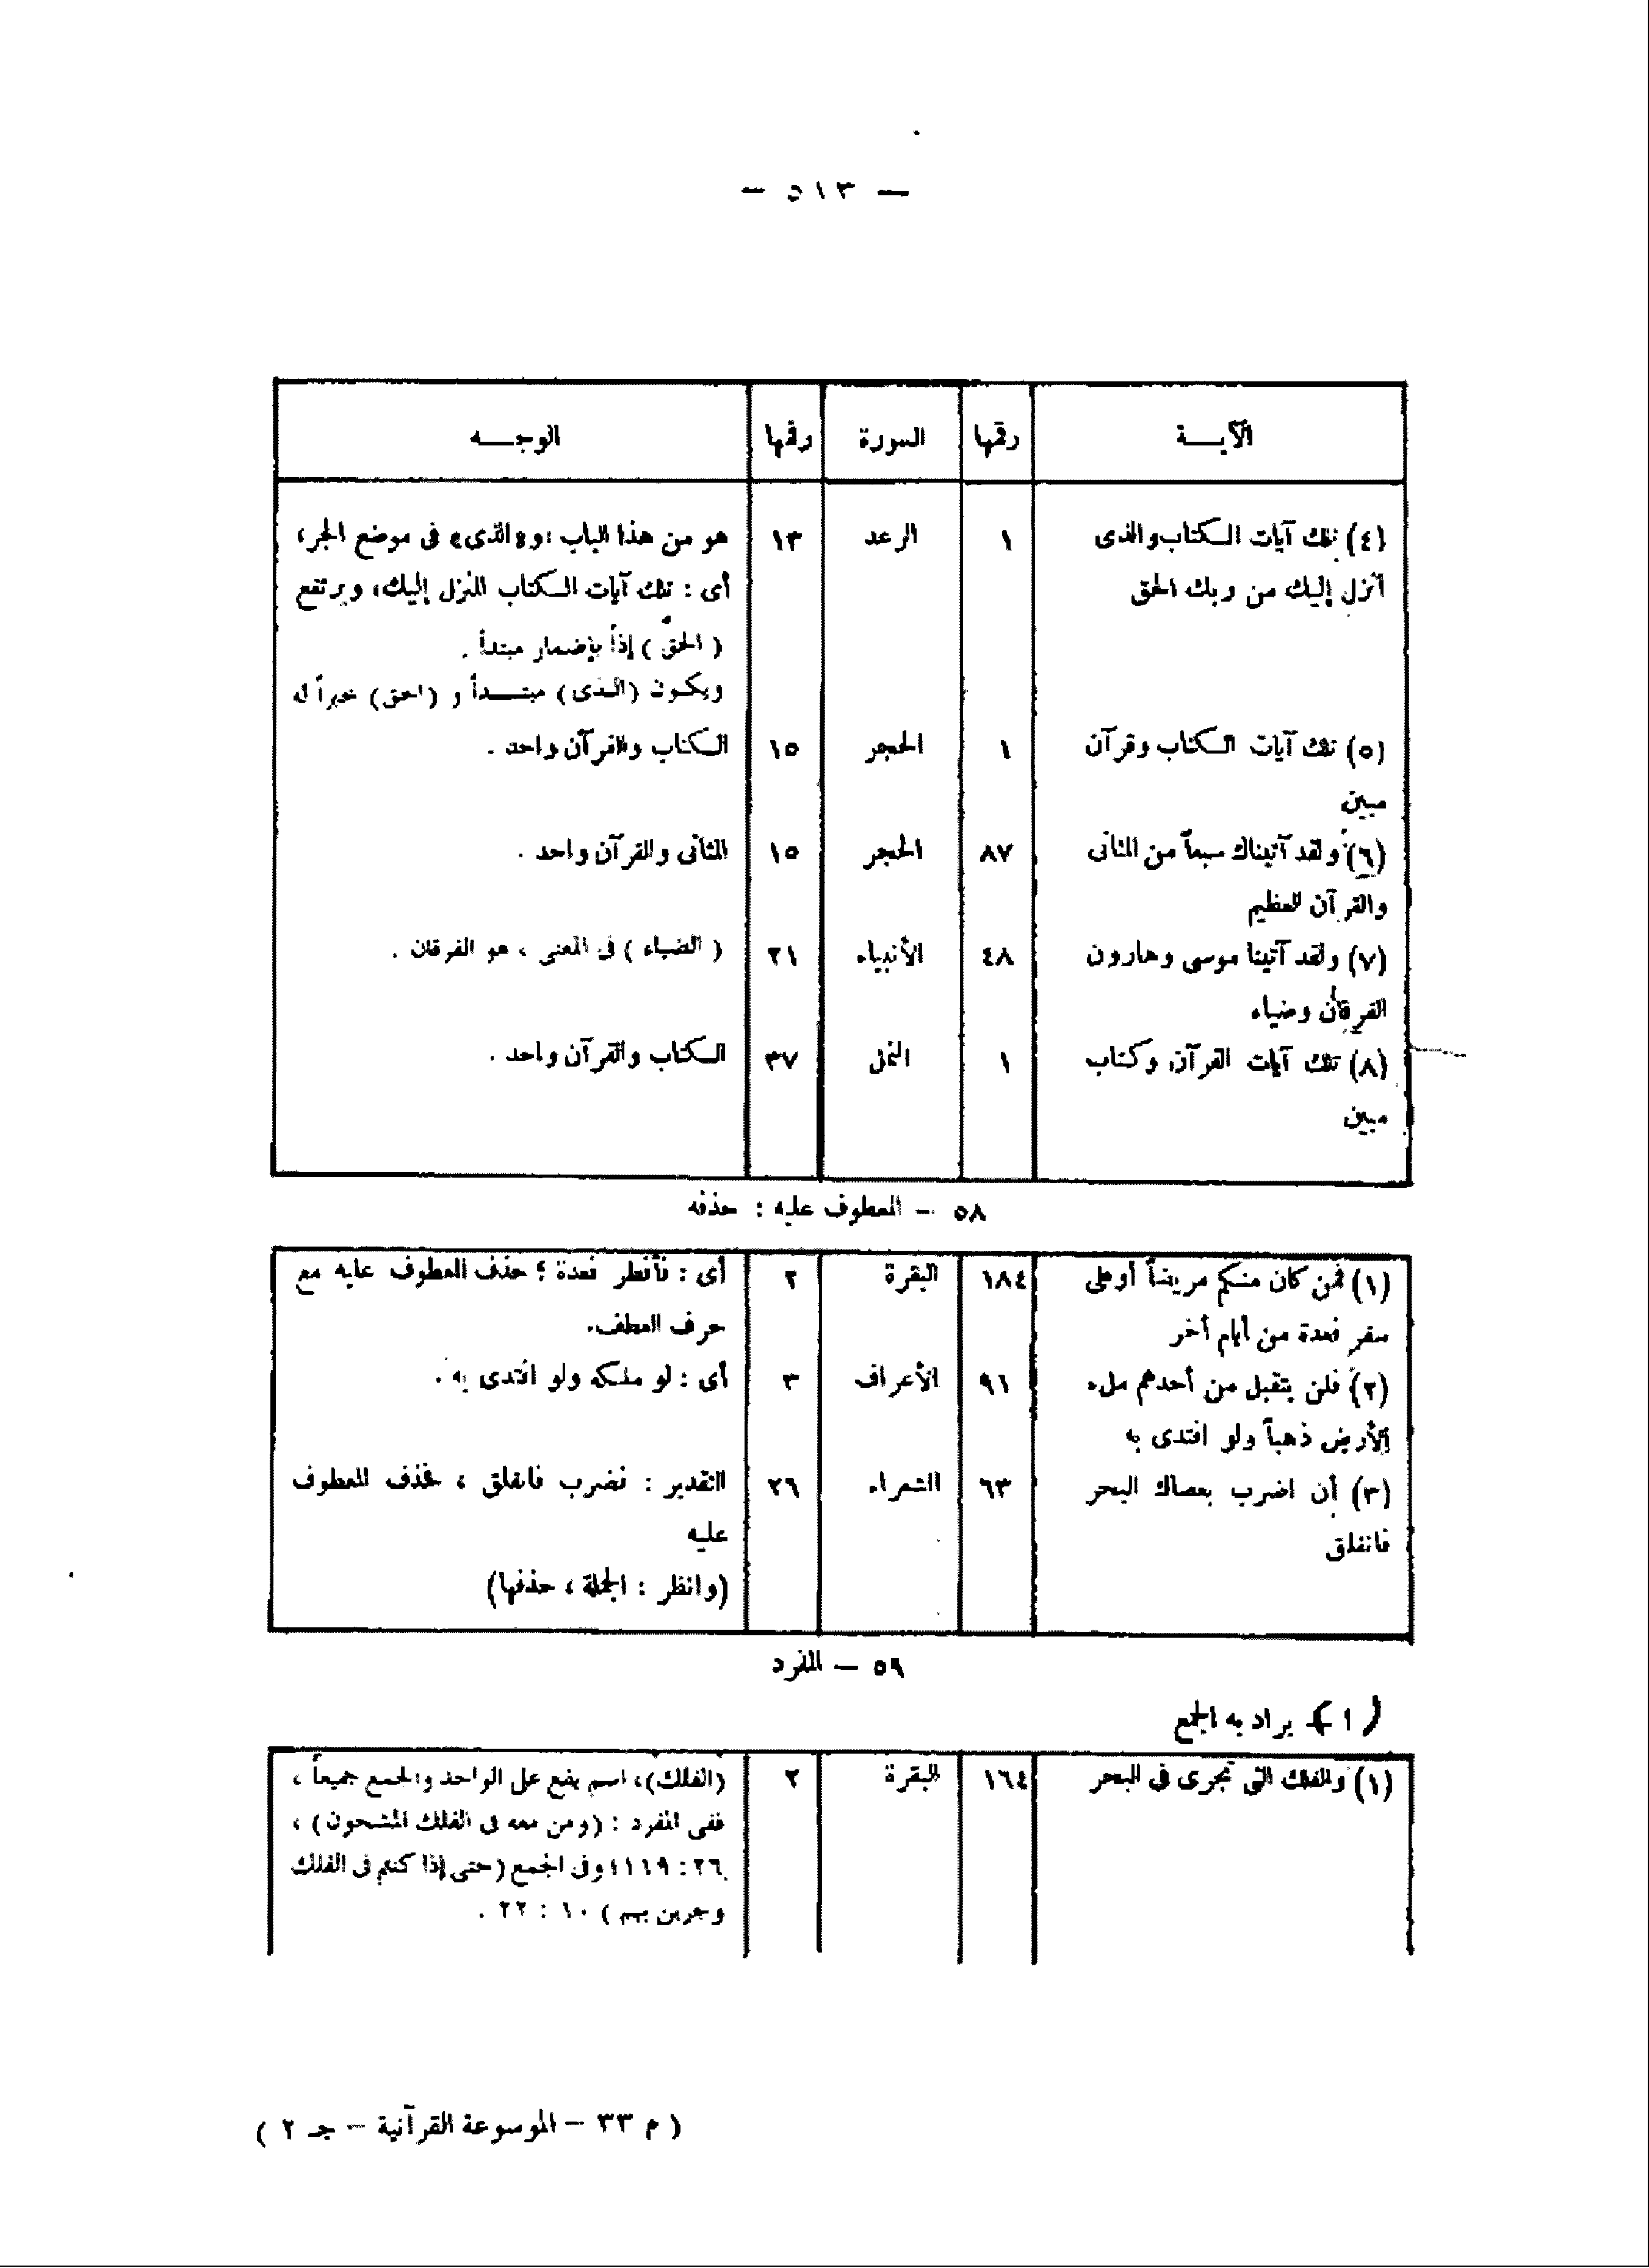 — ٥١٣ —
الآيـــة رقمها السورة رقمها الوجـــه
(٤) تلك آيات الكتاب والذى ١ الرعد ١٣ هو من هذا الباب ، و«الذى» فى موضع الجر،
أنزل إليك من ربك الحق أى : تلك آيات الكتاب المنزل إليك، ويرتفع
( الحقّ ) إذاً بإضمار مبتدأ .
ويكون (الذى) مبتـــدأ و (الحق) خبراً له
(٥) تلك آيات الكتاب وقرآن ١ الحجر ١٥ الكتاب والقرآن واحد .
مبين
(٦) ولقد آتيناك سبعاً من المثانى ٨٧ الحجر ١٥ المثانى والقرآن واحد .
والقرآن العظيم
(٧) ولقد آتينا موسى وهارون ٤٨ الأنبياء ٢١ ( الضياء ) فى المعنى ، هو الفرقان .
الفرقان وضياء
(٨) تلك آيات القرآن وكتاب ١ النمل ٣٧ الكتاب والقرآن واحد .
مبين
٥٨ — المعطوف عليه : حذفه
(١) فمن كان منكم مريضاً أو على ١٨٤ البقرة ٢ أى : فأفطر فعدة ؛ حذف المعطوف عليه مع
سفر فعدة من أيام أخر حرف العطف.
(٢) فلن يتقبل من أحدهم ملء ٩١ الأعراف ٣ أى : لو ملكه ولو افتدى به .
الأرض ذهباً ولو افتدى به
(٣) أن اضرب بعصاك البحر ٦٣ الشعراء ٢٦ التقدير : فضرب فانفلق ، فحذف المعطوف
فانفلق عليه
(وانظر : الجملة ، حذفها)
٥٩ — المفرد
( ا ) يراد به الجمع
(١) والفلك التى تجرى فى البحر ١٦٤ البقرة ٢ (الفلك)، اسم يقع على الواحد والجمع جميعاً ،
ففى المفرد : (ومن معه فى الفلك المشحون) ،
٢٦ : ١١٩ ؛ وفى الجمع (حتى إذا كنتم فى الفلك
وجرين بهم ) ١٠ : ٢٢ .
( م ٣٣ — الموسوعة القرآنية — جـ ٢ )